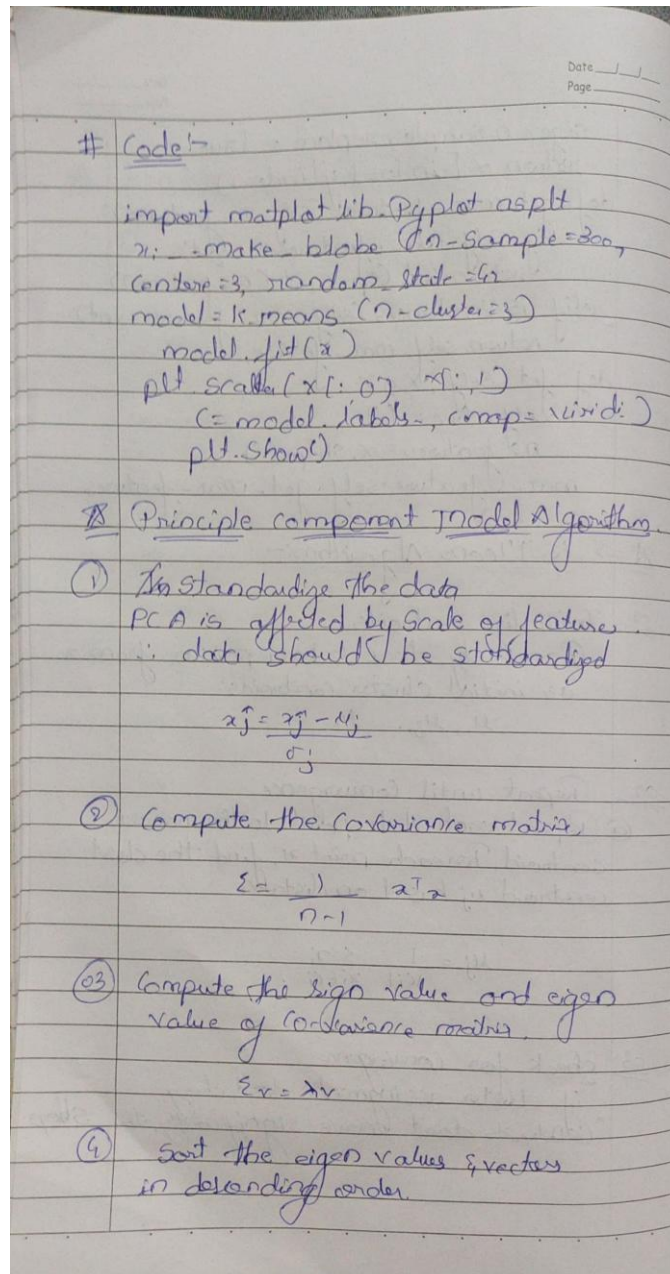 Date
Page
# Code :-
import matplot lib. Pyplot as plt
x, _ = make_blobe (n-Sample = 300,
Centore = 3, random state = 42
model = k.means (n-cluster = 3)
model.fist (x)
plt. scatter (x[: 0] x[:, 1]
C = model. labols_, cmap = viridi )
plt. show()
Principle component model Algorithm.
① standardize the data
PCA is affected by Scale of feature.
∴ data should be standardized
xĵ = xj - μj
σj
② Compute the Covariance matrix
Σ = 1 xᵀx
n-1
03 Compute the sign value and eigen
value of Co-variance matrix.
Σv = λv
④ Sort the eigen values & vectors
in descending order.